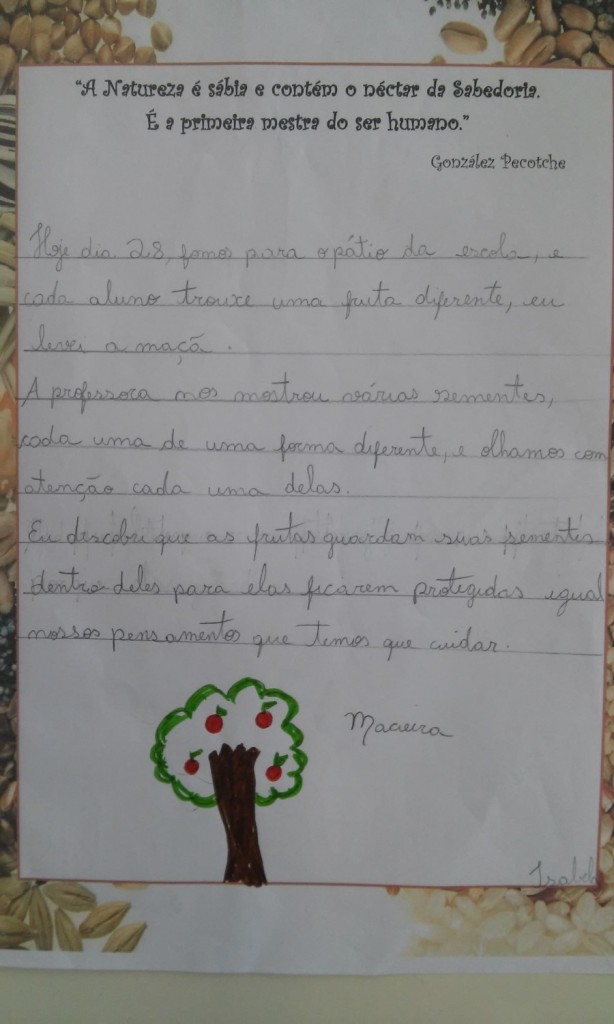 "A Natureza é sábia e contém o néctar da Sabedoria.
É a primeira mestra do ser humano."
González Pecotche
Hoje dia 28, fomos para o pátio da escola, e
cada aluno trouxe uma fruta diferente, eu
levei a maçã.
A professora nos mostrou várias sementes,
cada uma de uma forma diferente, e olhamos com
atenção cada uma delas.
Eu descobri que as frutas guardam suas sementes
dentro deles para elas ficarem protegidas igual
nossos pensamentos que temos que cuidar.
Macieira